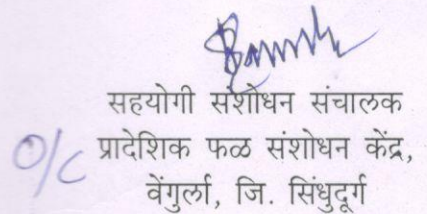 सहयोगी संशोधन संचालक
O/C प्रादेशिक फळ संशोधन केंद्र,
वेंगुर्ला, जि. सिंधुदूर्ग